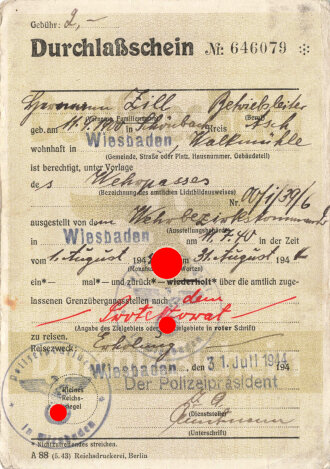 Gebühr: 2,-
Durchlaßschein Nr. 646079
Hermann Zill Betriebsleiter
(Vorname, Familienname) (Beruf)
geb. am in Schönbach Kreis Asch
wohnhaft in Wiesbaden Walkmühle
(Gemeinde, Straße oder Platz, Hausnummer, Gebäudeteil)
ist berechtigt, unter Vorlage
des Wehrpasses
(Bezeichnung des amtlichen Lichtbildausweises) Nr.
ausgestellt von dem Wehrbezirkskommando
(Ausstellungsbehörde)
Wiesbaden am 11.7.40 in der Zeit
vom 1. August 194 31. August 194
ein* — mal* — und zurück* — wiederholt* über die amtlich zuge-
lassenen Grenzübergangsstellen nach dem
Protektorat
(Angabe des Zielgebiets oder Zielgebiete in roter Schrift)
zu reisen.
Reisezweck: Erholung
Wiesbaden, den 31. Juli 1944 194
Der Polizeipräsident
(Dienststelle)
(Unterschrift)
Kleines
Reichs-
siegel
in Wiesbaden
* Nichtzutreffendes streichen.
A 88 (5. 43) Reichsdruckerei, Berlin